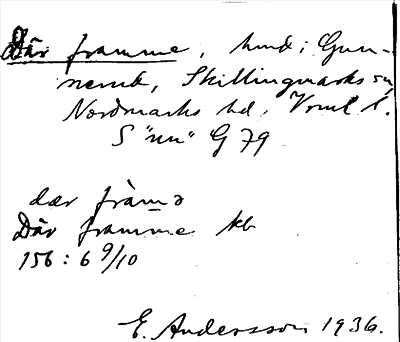 Där framme, hmd i Gun-
nerud, Skillingmarks sn,
Nordmarks hd, Vrml l.
S "nn" G 79
dær fràmə
Där framme kb
156 : 6 9/10
E. Andersson 1936.